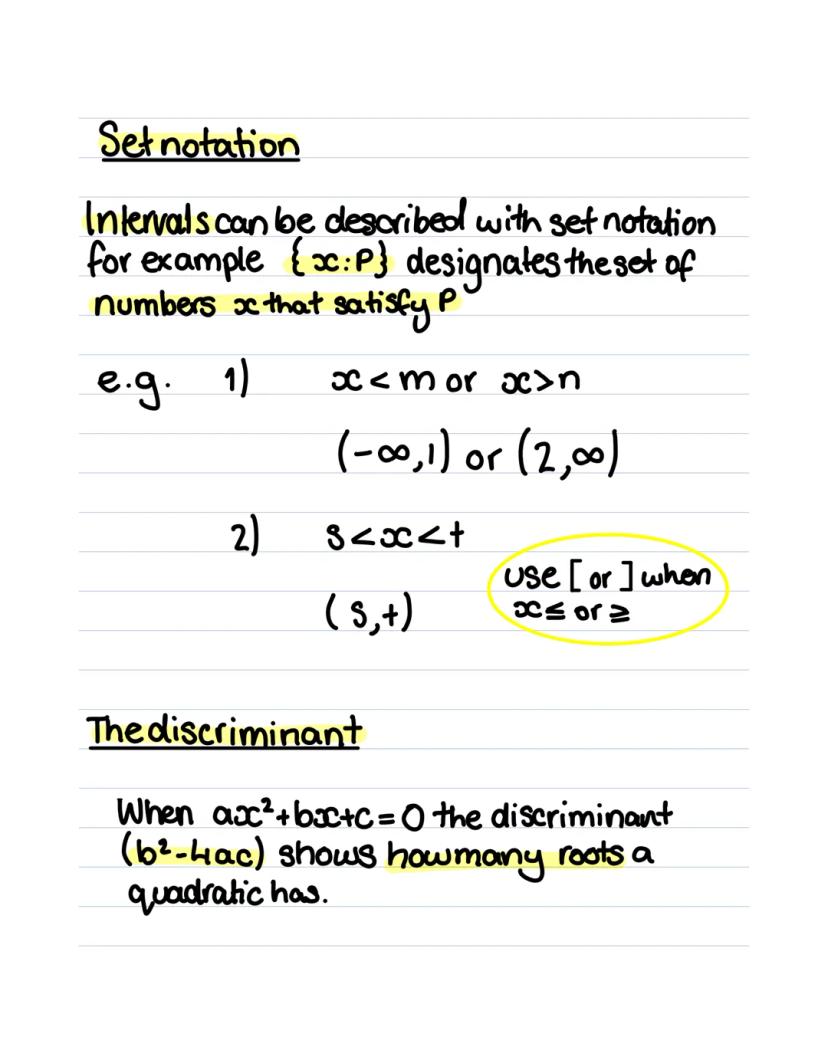 Set notation
Intervals can be described with set notation
for example {x:P} designates the set of
numbers x that satisfy P
e.g. 1) x<m or x>n
(-∞,1) or (2,∞)
2) s<x<t
(s,t)
use [ or ] when
x≤ or ≥
The discriminant
When ax²+bx+c=0 the discriminant
(b²-4ac) shows how many roots a
quadratic has.